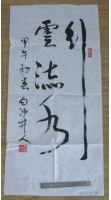 行
雲流水
甲午初春 白沙井人